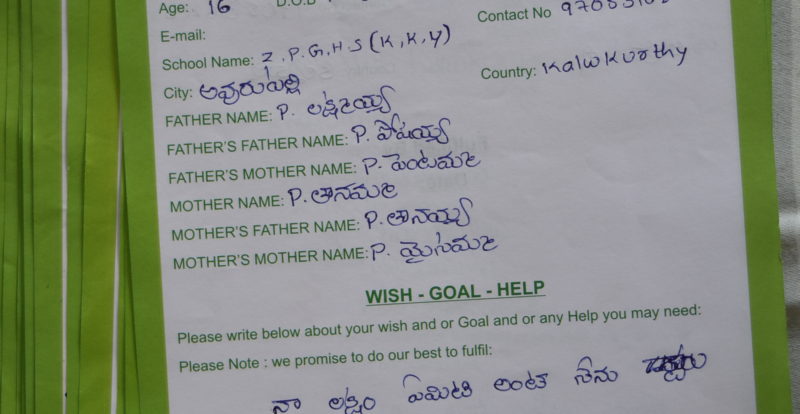 Age: 16
Contact No
E-mail:
School Name: Z.P.G.H.S (K,K,Y)
City: Country: Kalwkurthy
FATHER NAME: P. లక్ష్మయ్య
FATHER'S FATHER NAME: P. పోషయ్య
FATHER'S MOTHER NAME: P. పెంటమ్మ
MOTHER NAME: P.
MOTHER'S FATHER NAME: P.
MOTHER'S MOTHER NAME: P. మైసమ్మ
WISH - GOAL - HELP
Please write below about your wish and or Goal and or any Help you may need:
Please Note : we promise to do our best to fulfil:
నా లక్ష్యం ఏమిటి అంటే నేను